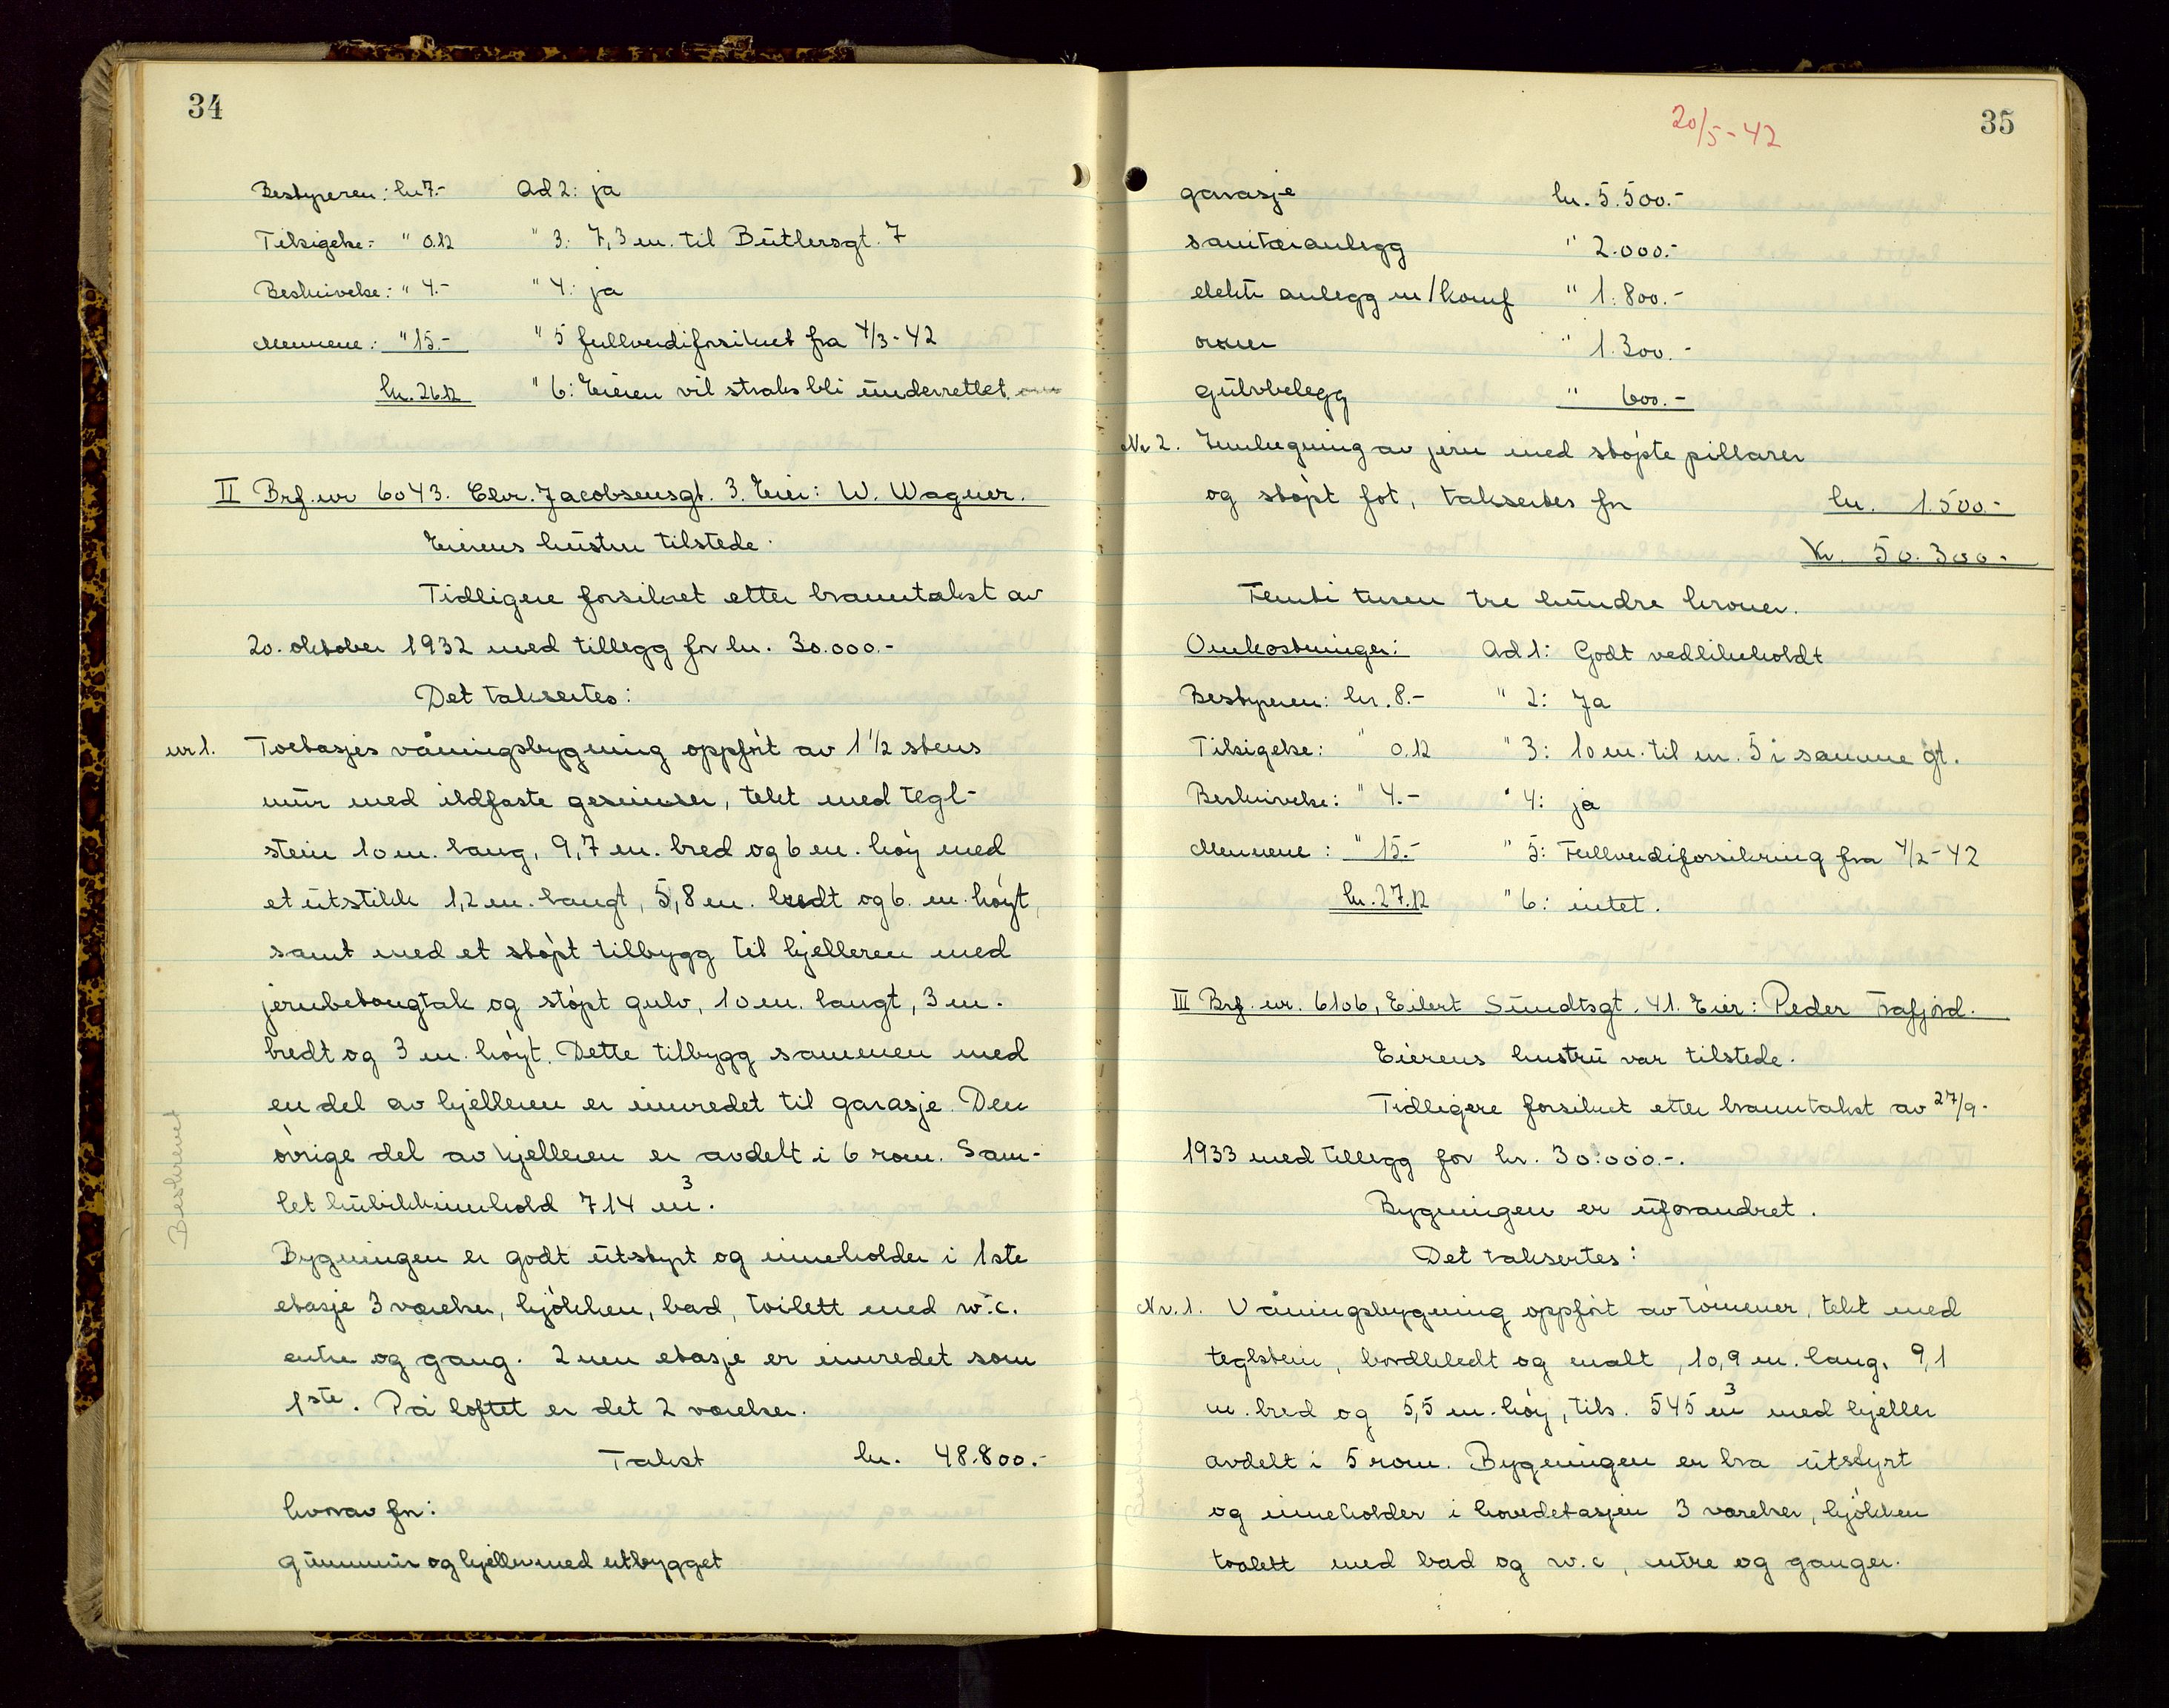 34
Bestyreren: kr 7.- Ad 2: ja
Tilsigelse: " 0.12 " 3: 7,3 m. til Butlersgt. 7
Beskrivelse: " 4.- " 4: ja
Mennene: " 15.- " 5 fullverdiforsikret fra 4/3-42
kr. 26.12 " 6: Eieren vil straks bli underrettet
II Brf. nr 6043. Chr. Jacobsensgt. 3. Eier: W. Wagner.
Eierens hustru tilstede.
Tidligere forsikret etter branntakst av
20. oktober 1932 med tillegg for kr. 30.000.-
Det taksertes:
nr 1. Toetasjes våningsbygning oppført av 1 1/2 stens
mur med ildfaste gesimser, tekt med tegl-
stein 10 m. lang, 9,7 m. bred og 6 m. høy med
et utstikk 1,2 m. langt, 5,8 m. bredt og 6. m. høyt,
samt med et støpt tilbygg til kjelleren med
jernbetongtak og støpt gulv, 10 m. langt, 3 m.
bredt og 3 m. høyt. Dette tilbygg sammen med
en del av kjelleren er innredet til garasje. Den
øvrige del av kjelleren er avdelt i 6 rom. Sam-
let kubikkinnhold 714 m³.
Bygningen er godt utstyrt og inneholder i 1ste
etasje 3 værelser, kjøkken, bad, toilett med w.c.
entre og gang. 2nen etasje er innredet som
1ste. På loftet er det 2 værelser.
Takst kr. 48.800.-
hvorav for:
Grunnmur og kjeller med utbygget
Beskrevet
20/5-42
35
garasje kr. 5.500.-
sanitæranlegg " 2.000.-
elektr anlegg m/komf " 1.800.-
ovner " 1.300.-
gulvbelegg " 600.-
Nr 2. Innhegning av jern med støpte pillarer
og støpt fot, taksertes for kr. 1.500.-
Kr. 50.300.-
Femti tusen tre hundre kroner.
Omkostninger: Ad 1: Godt vedlikeholdt
Bestyreren: kr. 8.- " 2: Ja
Tilsigelse: " 0.12 " 3: 10 m. til nr. 5 i samme gt.
Beskrivelse: " 4.- " 4: ja
Mennene: " 15.- " 5: Fullverdiforsikring fra 4/2-42
kr. 27.12 " 6: intet.
III Brf. nr. 6106, Eilert Sundtsgt. 41. Eier: Peder Frafjord.
Eierens hustru var tilstede.
Tidligere forsikret etter branntakst av 27/9-
1933 med tillegg for kr. 30.000.-.
Bygningen er uforandret.
Det taksertes:
Nr. 1. Våningsbygning oppført av tømmer, tekt med
teglstein, bordkledt og malt, 10,9 m. lang, 9,1
m. bred og 5,5 m. høy, tils. 545 m³ med kjeller
avdelt i 5 rom. Bygningen er bra utstyrt
og inneholder i hovedetasjen 3 værelser, kjøkken
toalett med bad og w.c, entre og ganger.